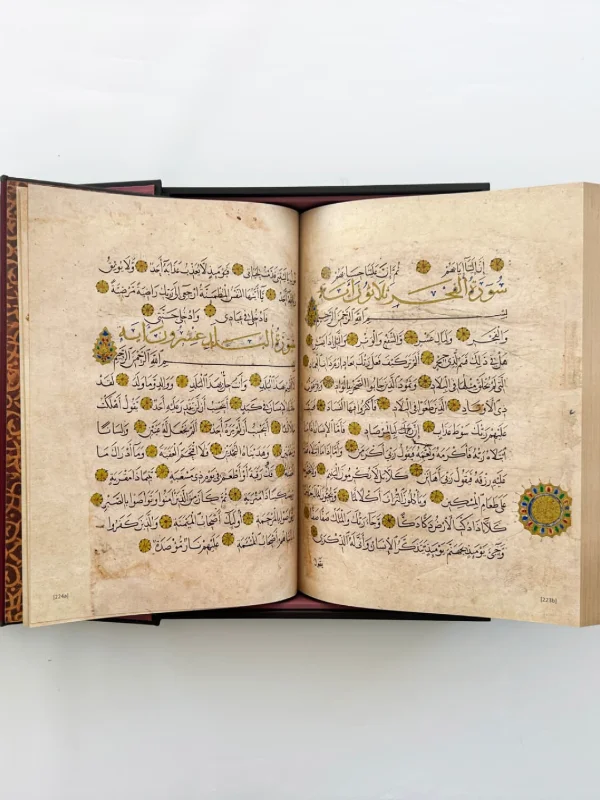 إن إلينا إيابهم ثم إن علينا حسابهم
سورة الفجر ثلاثون آية
بسم الله الرحمن الرحيم
والفجر وليال عشر والشفع والوتر والليل إذا يسر
هل في ذلك قسم لذي حجر ألم تر كيف فعل ربك بعاد إرم ذات العماد
التي لم يخلق مثلها في البلاد وثمود الذين جابوا الصخر بالواد وفرعون
ذي الأوتاد الذين طغوا في البلاد فأكثروا فيها الفساد فصب
عليهم ربك سوط عذاب إن ربك لبالمرصاد فأما الإنسان إذا ما
ابتلاه ربه فأكرمه ونعمه فيقول ربي أكرمن وأما إذا ما ابتلاه فقدر
عليه رزقه فيقول ربي أهانن كلا بل لا تكرمون اليتيم ولا تحاضون
على طعام المسكين وتأكلون التراث أكلا لما وتحبون المال حبا جما
كلا إذا دكت الأرض دكا دكا وجاء ربك والملك صفا صفا
وجيء يومئذ بجهنم يومئذ يتذكر الإنسان وأنى له الذكرى
يقول
[223b]
يقول يا ليتني قدمت لحياتي فيومئذ لا يعذب عذابه أحد ولا يوثق
وثاقه أحد يا أيتها النفس المطمئنة ارجعي إلى ربك راضية مرضية
فادخلي في عبادي وادخلي جنتي
سورة البلد عشرون آية
بسم الله الرحمن الرحيم
لا أقسم بهذا البلد وأنت حل بهذا البلد ووالد وما ولد لقد
خلقنا الإنسان في كبد أيحسب أن لن يقدر عليه أحد يقول أهلكت
مالا لبدا أيحسب أن لم يره أحد ألم نجعل له عينين ولسانا
وشفتين وهديناه النجدين فلا اقتحم العقبة وما أدراك ما
العقبة فك رقبة أو إطعام في يوم ذي مسغبة يتيما ذا مقربة
أو مسكينا ذا متربة ثم كان من الذين آمنوا وتواصوا بالصبر
وتواصوا بالمرحمة أولئك أصحاب الميمنة والذين كفروا
بآياتنا هم أصحاب المشأمة عليهم نار مؤصدة
[224a]